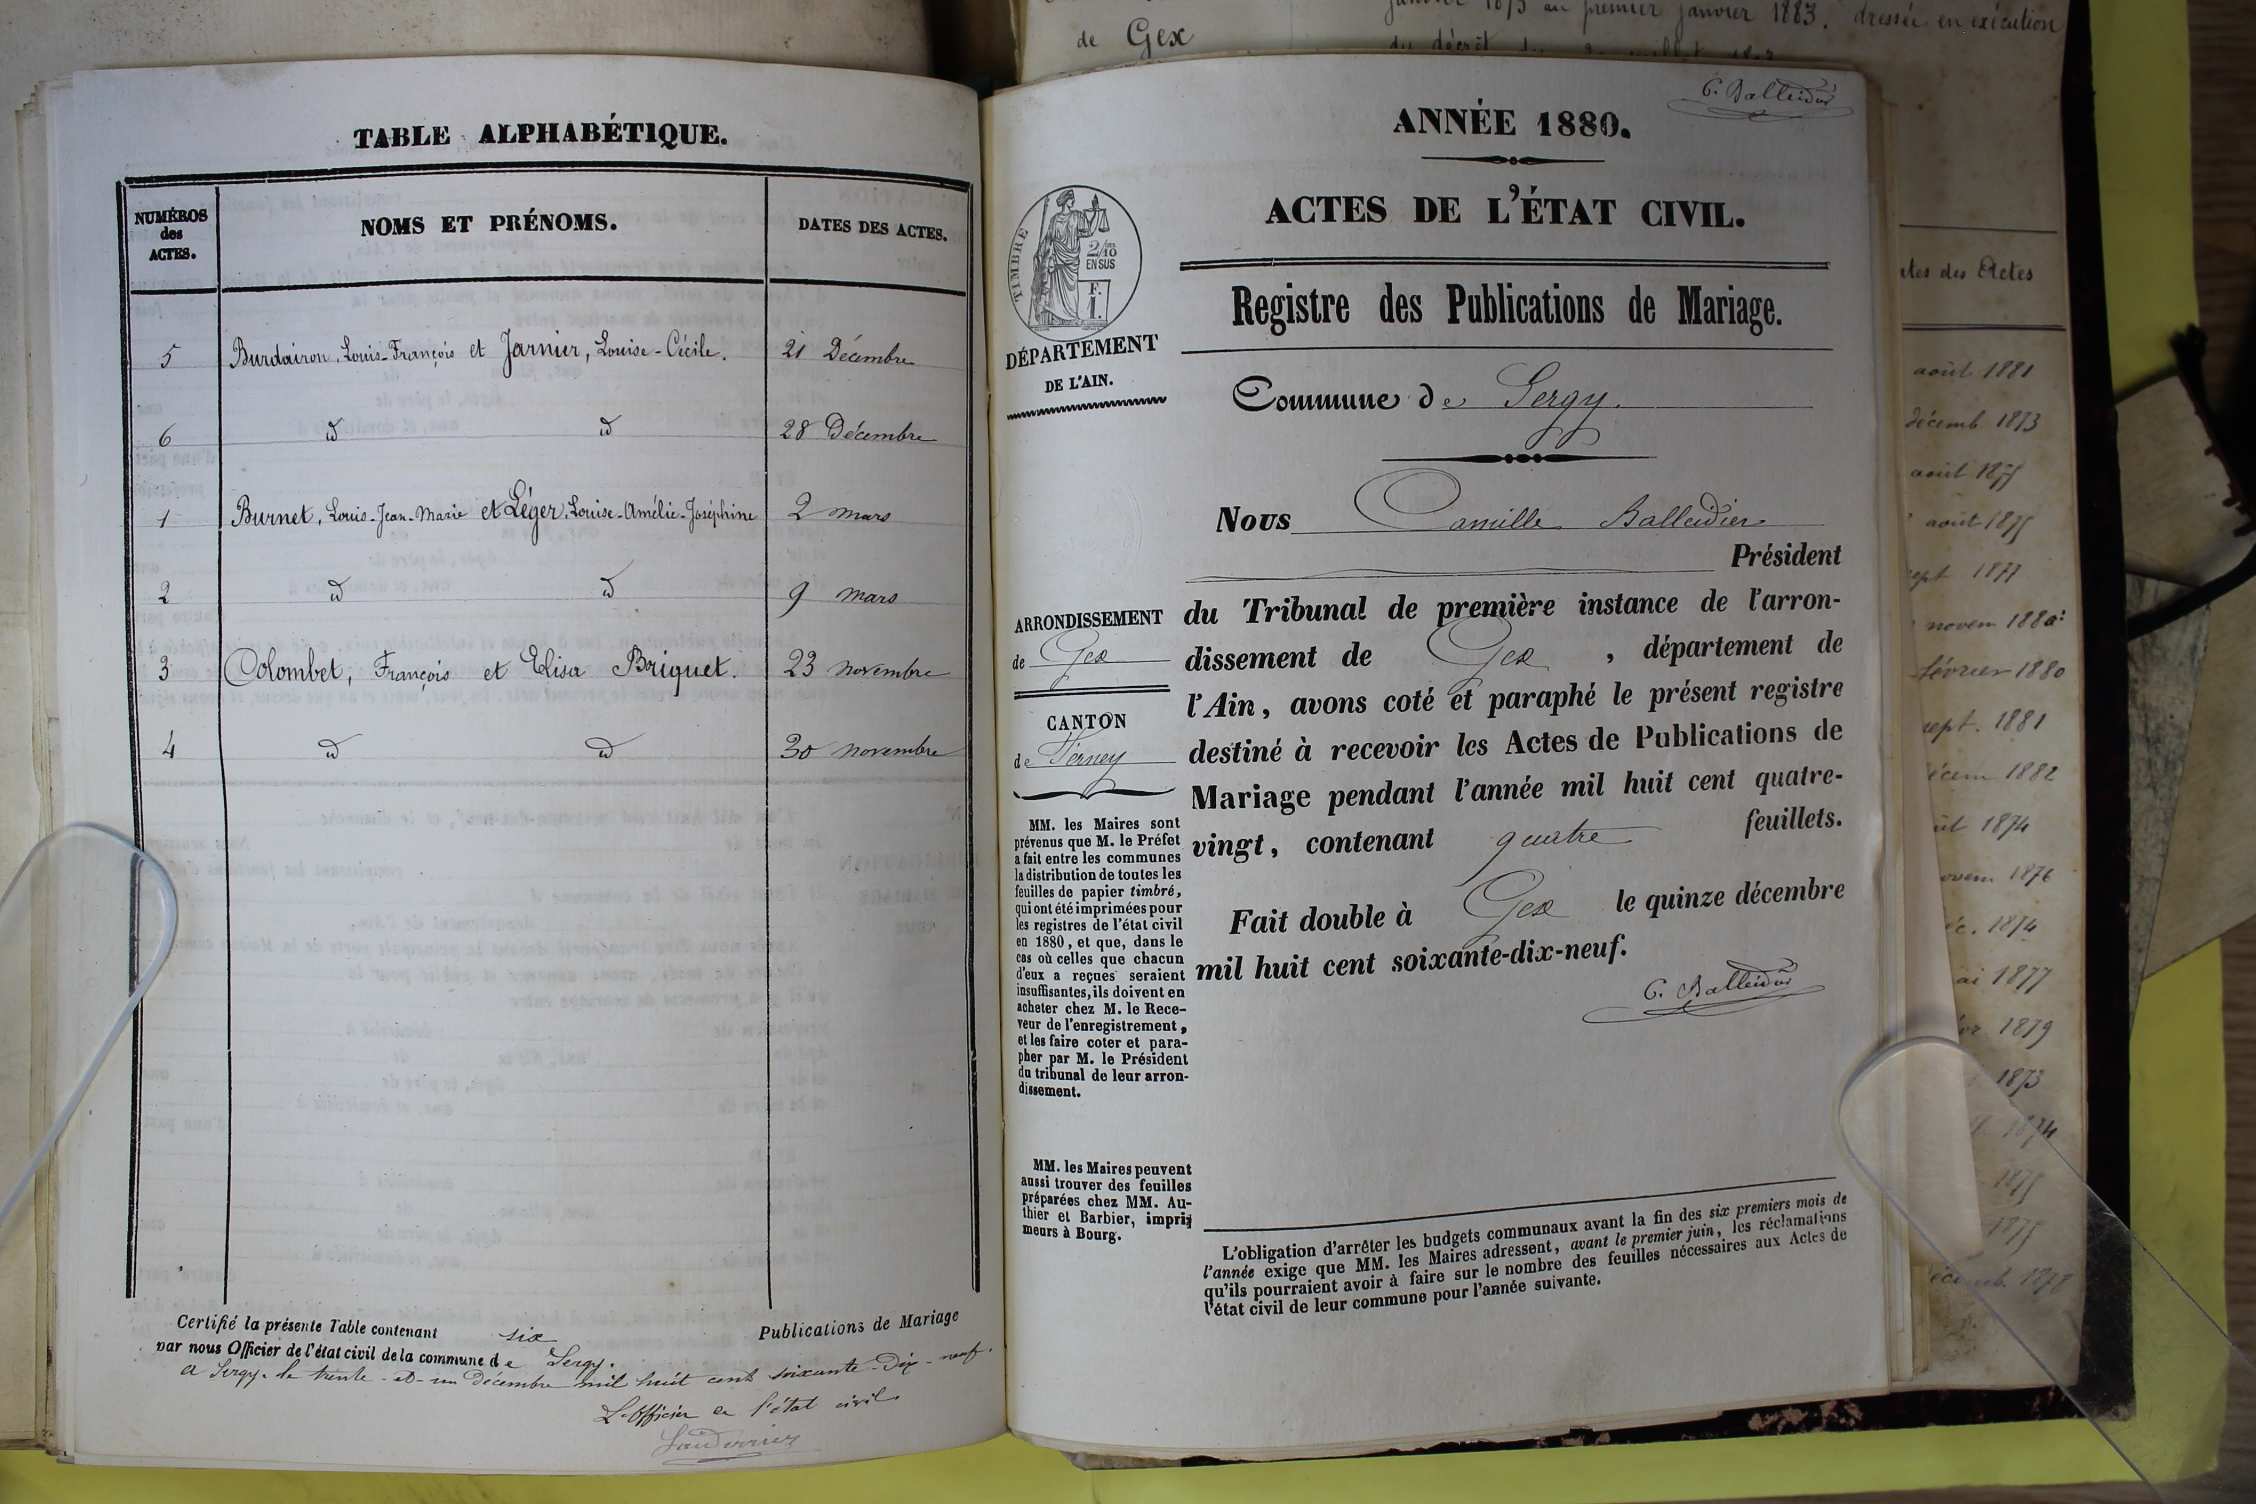 TABLE ALPHABÉTIQUE.
NUMÉROS
des
ACTES.
NOMS ET PRÉNOMS.
DATES DES ACTES.
5 Burdairon, Louis-François et Jarnier, Louise-Cécile. 21 Décembre
6 d d 28 Décembre
1 Burnet, Louis-Jean-Marie et Léger, Louise-Amélie-Joséphine 2 mars
2 d d 9 mars
3 Colombet, François et Elisa Briquet. 23 novembre
4 d d 30 novembre
Certifié la présente Table contenant six Publications de Mariage
par nous Officier de l'état civil de la commune de Sergy.
A Sergy, le trente-et-un Décembre mil huit cent soixante-Dix-neuf.
L'officier de l'état civil
C. Balleidier
ANNÉE 1880.
ACTES DE L'ÉTAT CIVIL.
Registre des Publications de Mariage.
Commune de Sergy.
TIMBRE
2/10
EN SUS
F.
1.
DÉPARTEMENT
DE L'AIN.
ARRONDISSEMENT
de Gex
CANTON
de Ferney
MM. les Maires sont
prévenus que M. le Préfet
a fait entre les communes
la distribution de toutes les
feuilles de papier timbré,
qui ont été imprimées pour
les registres de l'état civil
en 1880, et que, dans le
cas où celles que chacun
d'eux a reçues seraient
insuffisantes, ils doivent en
acheter chez M. le Rece-
veur de l'enregistrement,
et les faire coter et para-
pher par M. le Président
du tribunal de leur arron-
dissement.
MM. les Maires peuvent
aussi trouver des feuilles
préparées chez MM. Au-
thier et Barbier, impri-
meurs à Bourg.
Nous Camille Balleidier
Président
du Tribunal de première instance de l'arron-
dissement de Gex, département de
l'Ain, avons coté et paraphé le présent registre
destiné à recevoir les Actes de Publications de
Mariage pendant l'année mil huit cent quatre-
vingt, contenant quatre feuillets.
Fait double à Gex le quinze décembre
mil huit cent soixante-dix-neuf.
C. Balleidier
L'obligation d'arrêter les budgets communaux avant la fin des six premiers mois de
l'année exige que MM. les Maires adressent, avant le premier juin, les réclamations
qu'ils pourraient avoir à faire sur le nombre des feuilles nécessaires aux Actes de
l'état civil de leur commune pour l'année suivante.
de Gex
janvier 1873 au premier janvier 1883, dressée en exécution
du décret
des Actes
août 1881
décemb 1873
août 1875
août 1875
sept 1877
novem 1880
février 1880
sept. 1881
1882
1874
1876
1874
1877
1879
1873
1874
1875
1875